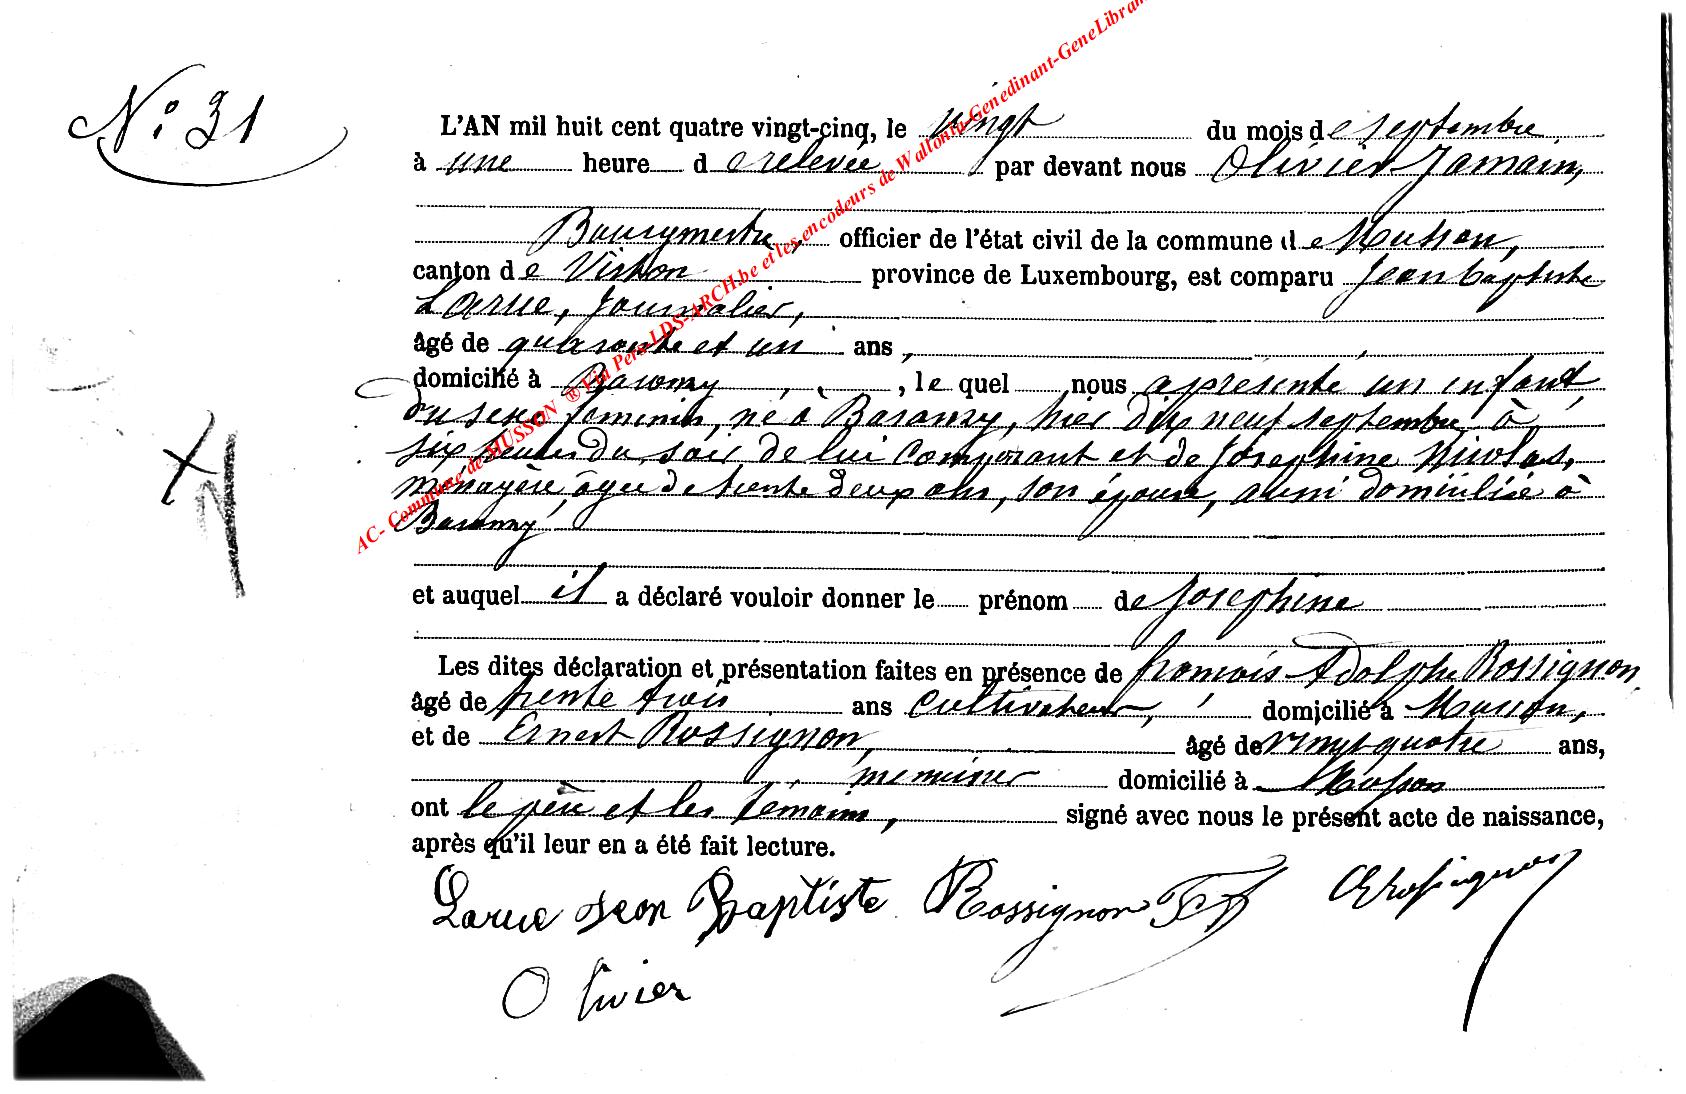 N° 31
L'AN mil huit cent quatre vingt-cinq, le vingt du mois de septembre
à une heure de relevée par devant nous Olivier Jamain,
Bourgmestre, officier de l'état civil de la commune de Musson,
canton de Virton province de Luxembourg, est comparu Jean baptiste
Larue, Journalier,
âgé de quarante et un ans,
domicilié à Baranzy, lequel nous a présenté un enfant
du sexe féminin, né à Baranzy, hier dix neuf septembre à
six heures du soir de lui comparant et de Joséphine Nicolas,
ménagère âgée de trente deux ans, son épouse, aussi domiciliée à
Baranzy
et auquel il a déclaré vouloir donner le prénom de Joséphine
Les dites déclaration et présentation faites en présence de françois Adolphe Rossignon
âgé de trente trois ans cultivateur, domicilié à Musson,
et de Ernest Rossignon, âgé de vingt quatre ans,
menuisier domicilié à Musson
ont le père et les témoins, signé avec nous le présent acte de naissance,
après qu'il leur en a été fait lecture.
Larue Jean Baptiste Rossignon F A E Rossignon
Olivier
AC- Commune de MUSSON ® Via Pero LDS-ARCH.be et les encodeurs de Wallonia-Genedinant-GeneLibran